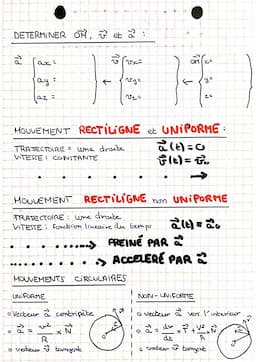 DETERMINER OM, v et a :
a { ax = ← v { vx = ← OM { x =
ay = vy = y =
az = vz = z =
MOUVEMENT RECTILIGNE et UNIFORME :
TRAJECTOIRE = une droite a(t) = 0
VITESSE : CONSTANTE v(t) = v₀
MOUVEMENT RECTILIGNE non UNIFORME
TRAJECTOIRE : une droite
VITESSE : fonction linéaire du temps a(t) = a₀
FREINÉ PAR a
ACCELERÉ PAR a
MOUVEMENTS CIRCULAIRES
UNIFORME
o vecteur a centripète
o a = v²/R × N
o vecteur v tangent
NON-UNIFORME
o vecteur a vers l'intérieur
o a = dv/dt × T + v²/R × N
o vecteur v tangent